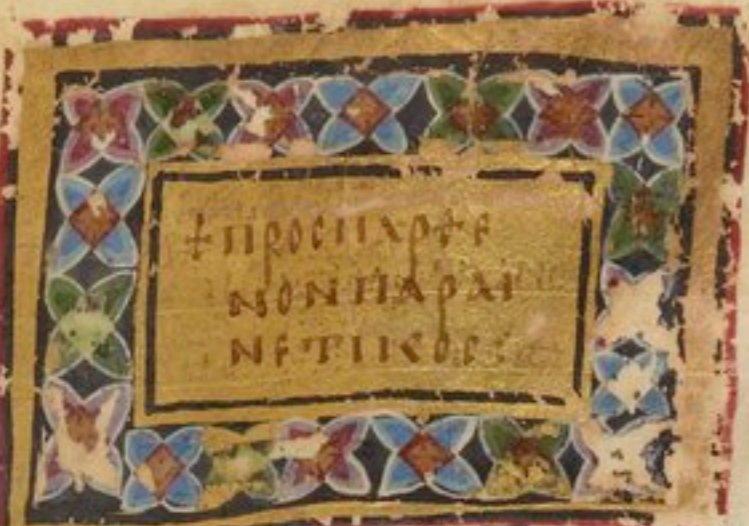 +ΠΡΟCΠΑΡΘΕ
ΝΟΝΠΑΡΑΙ
ΝΕΤΙΚΟC